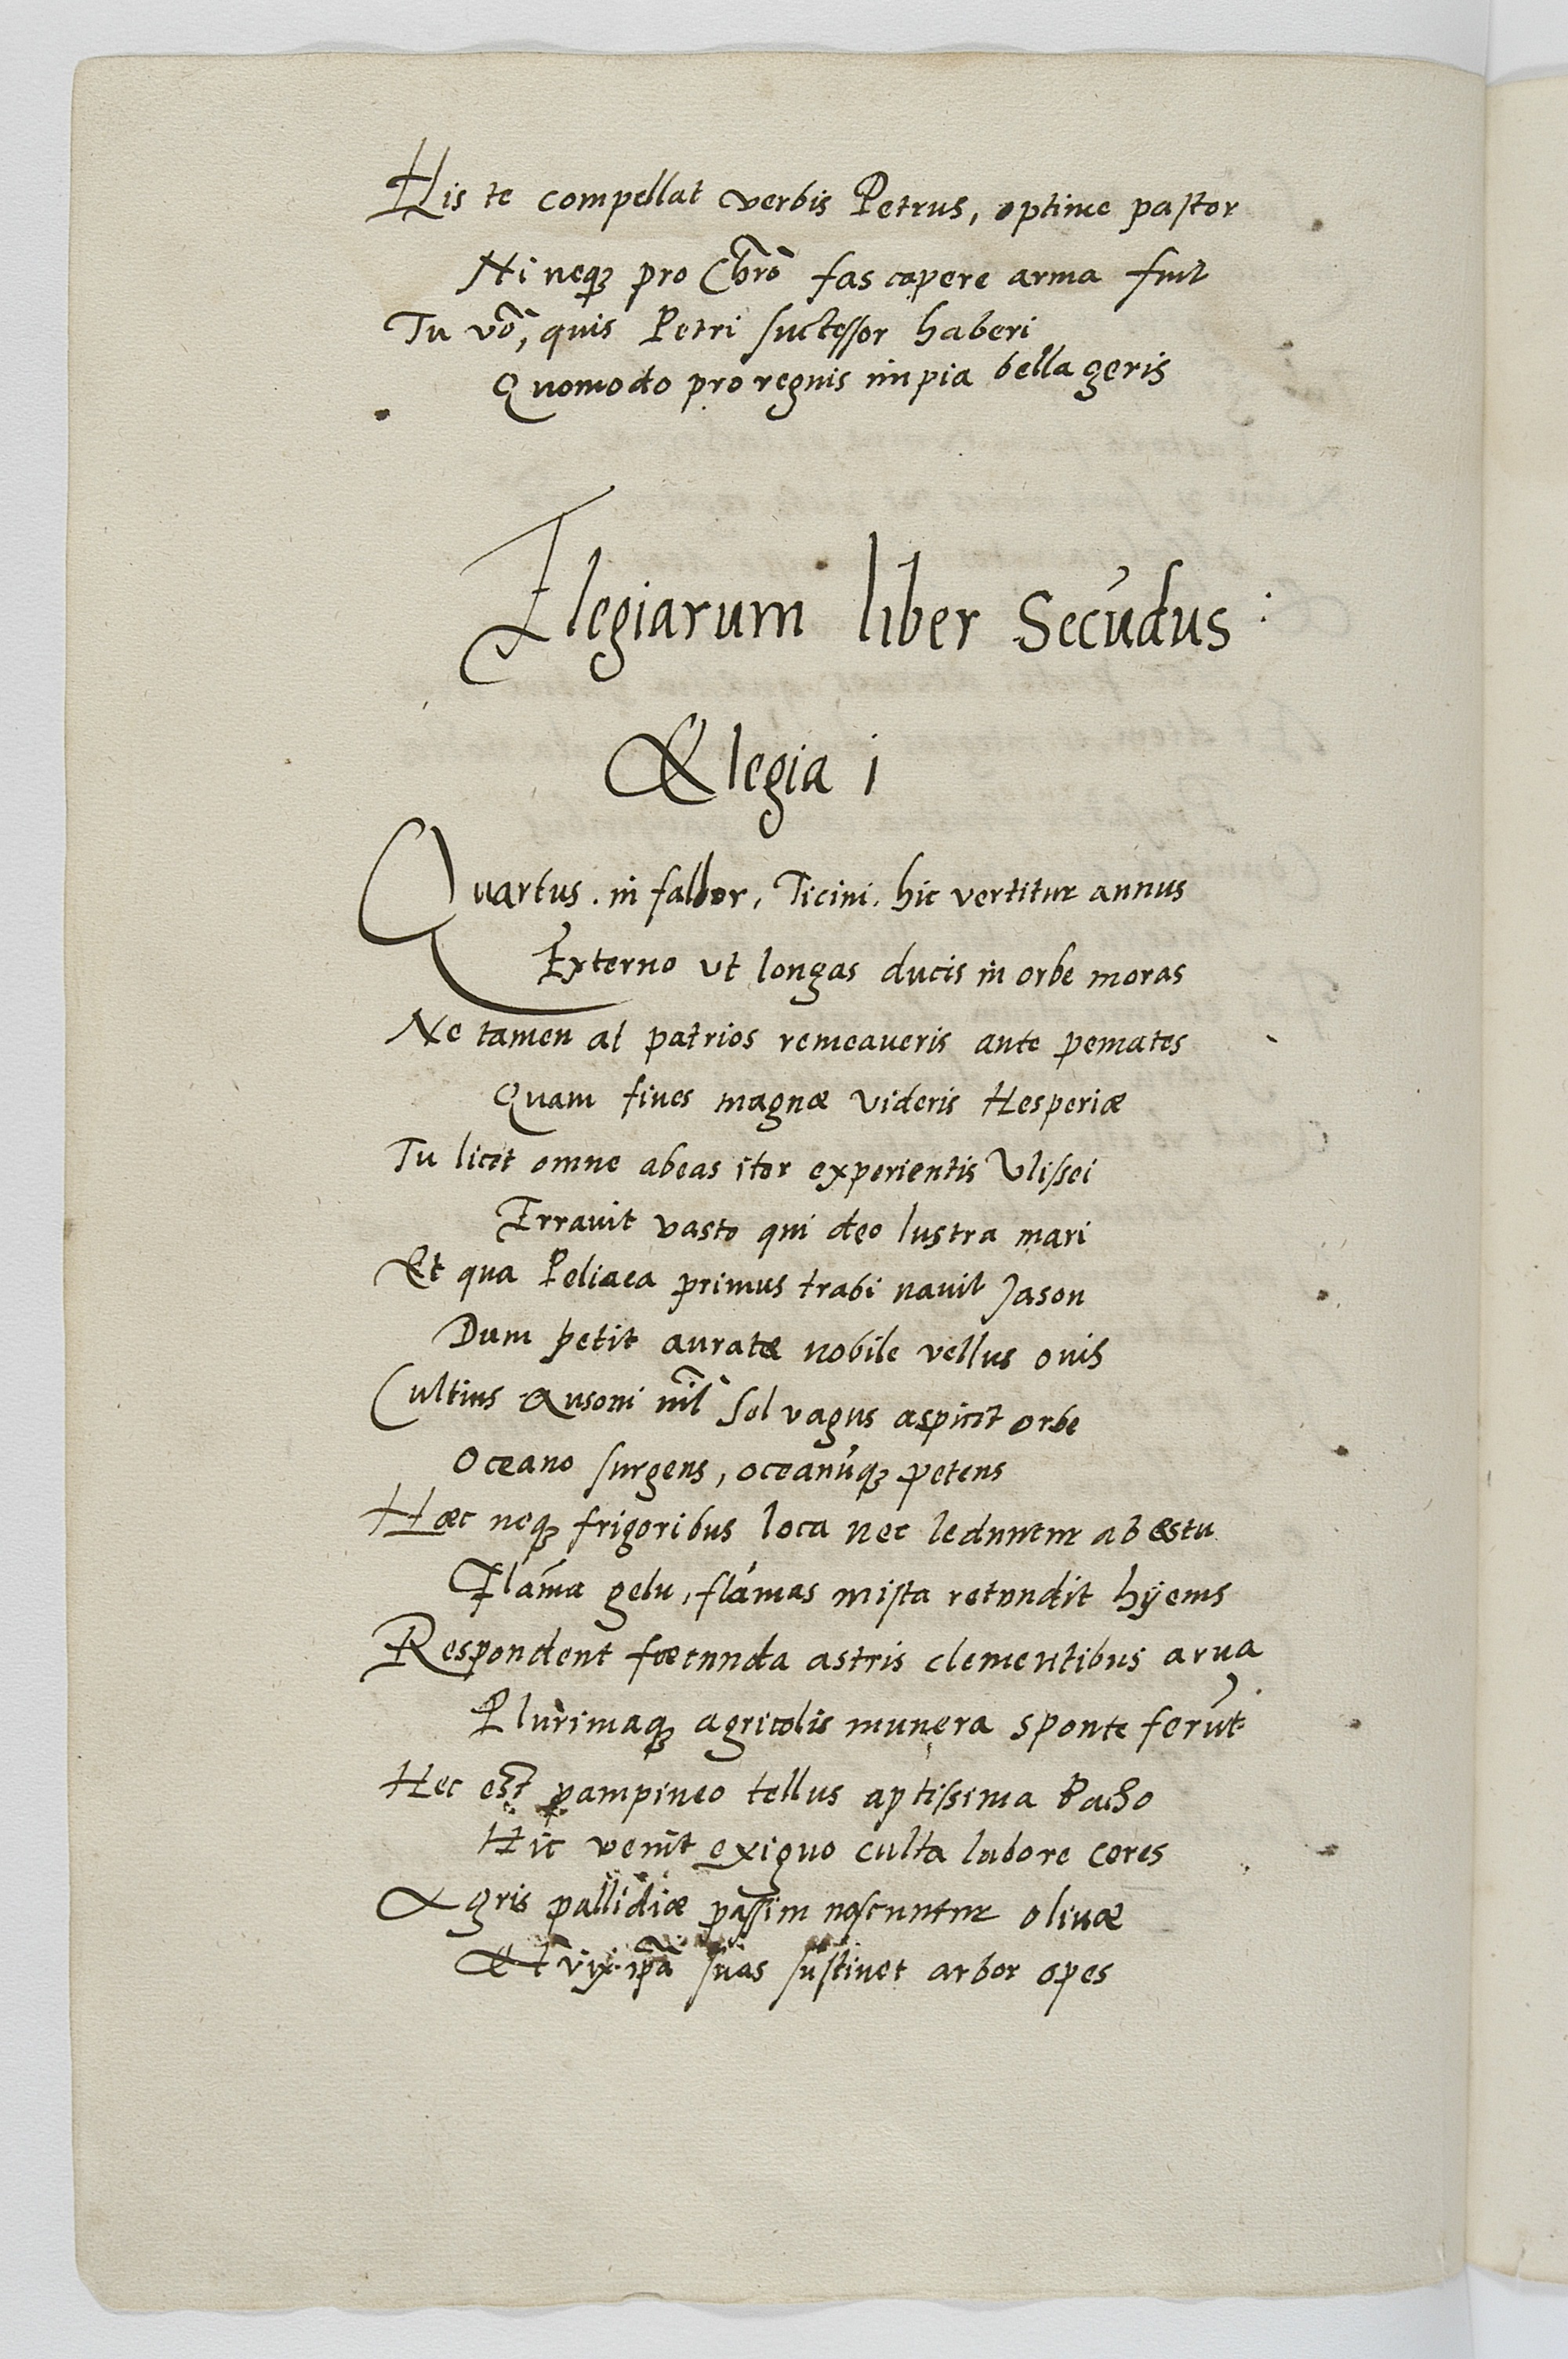 His te compellat verbis Petrus, optime pastor
Ni neq; pro Chrõ fas capere arma fuit
Tu võ, quis Petri successor haberi
Quomodo pro regnis impia bella geris
Elegiarum liber Secũdus
Elegia i
Quartus. ni fallor, Ticini. hic vertitur annus
Externo ut longas ducis in orbe moras
Ne tamen at patrios remeaveris ante pemates
Quam fines magnæ videris Hesperiæ
Tu licet omne abeas iter experientis Ulissei
Erravit vasto qui deo lustra mari
Et qua Peliaca primus trabi navit Jason
Dum petit auratæ nobile vellus ovis
Cultius Ausoni nĩl Sol vagus aspicit orbe
Oceano surgens, oceanũq; petens
Hæc neq; frigoribus loca nec leduntur ab æstu
Flãma gelu, flãmas mista retundit hyems
Respondent fœcunda astris clementibus arva
Plurimaq; agricolis munera sponte ferũt
Hec est pampineo tellus aptissima Bacho
Hic venit exiguo culta labore ceres
Agris pallidiæ passim noscuntur olivæ
Et vix ipã suas sustinet arbor opes